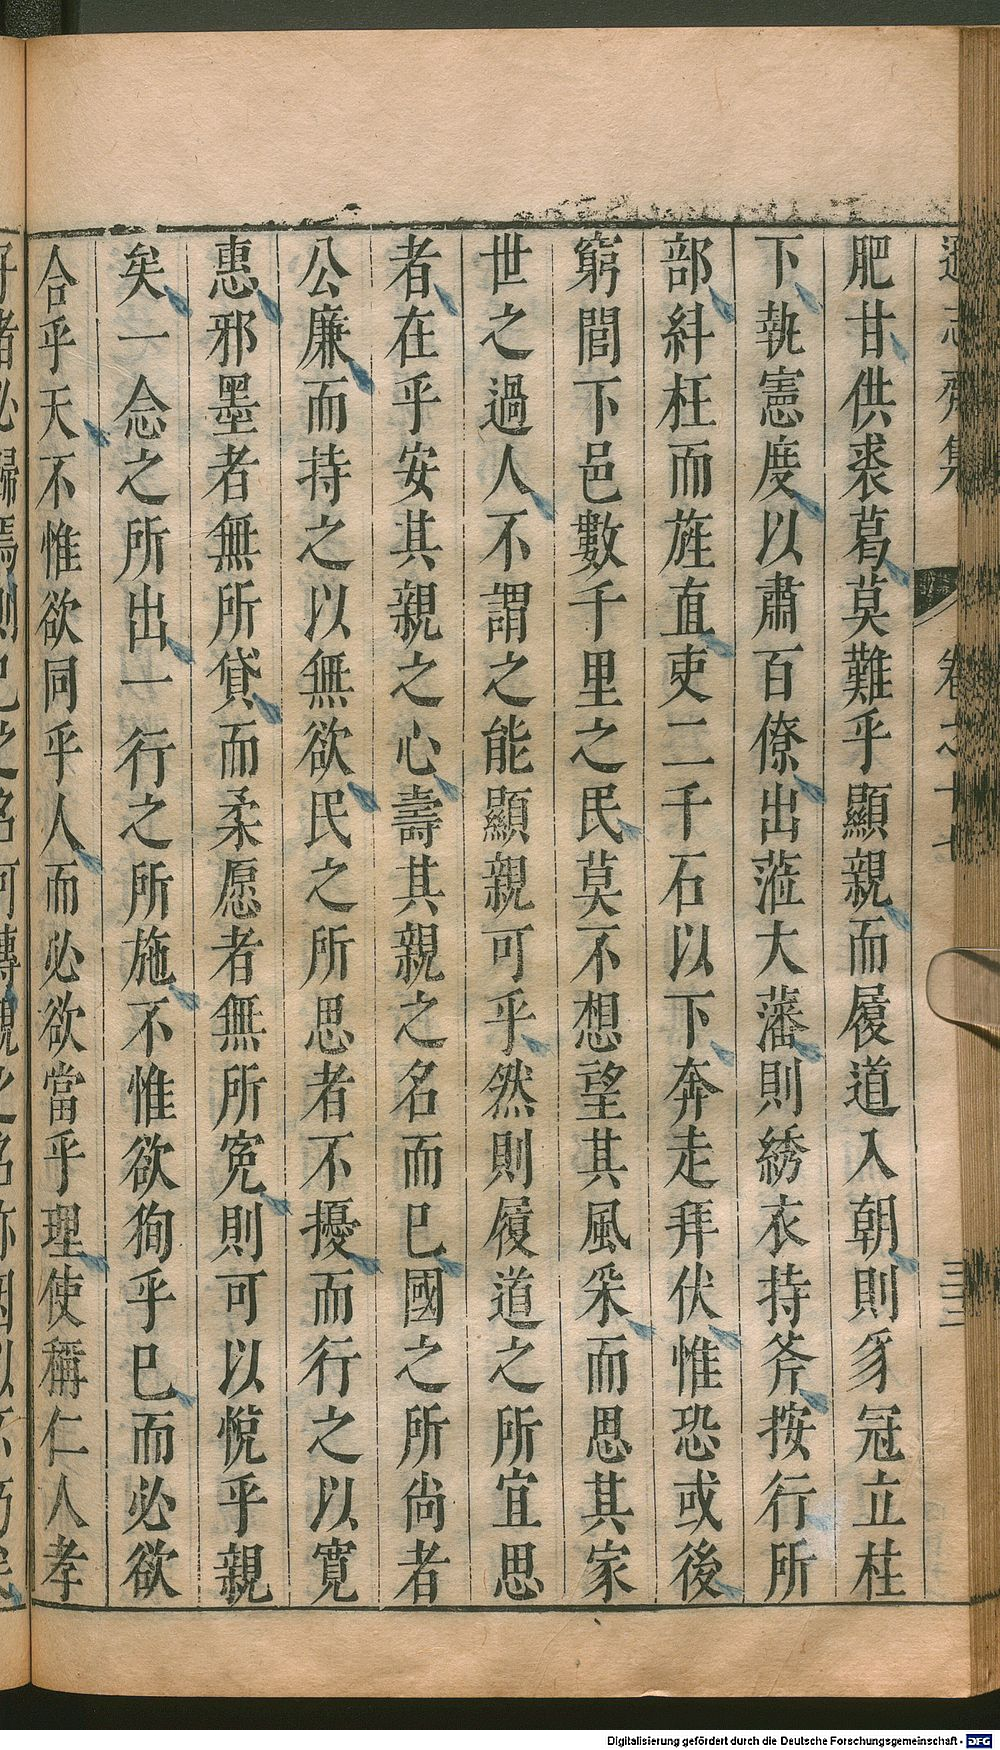 遜志齋集 卷之十七 三三
肥甘供裘葛莫難乎顯親而履道入朝則豸冠立柱
下執憲度以肅百僚出蒞大藩則綉衣持斧按行所
部糾枉而旌直吏二千石以下奔走拜伏惟恐或後
窮閻下邑數千里之民莫不想望其風采而思其家
世之過人不謂之能顯親可乎然則履道之所宜思
者在乎安其親之心壽其親之名而已國之所尚者
公廉而持之以無欲民之所思者不擾而行之以寬
惠邪墨者無所貸而柔愿者無所寃則可以悅乎親
矣一念之所出一行之所施不惟欲狥乎已而必欲
合乎天不惟欲同乎人而必欲當乎理使稱仁人孝
Digitalisierung gefördert durch die Deutsche Forschungsgemeinschaft - DFG